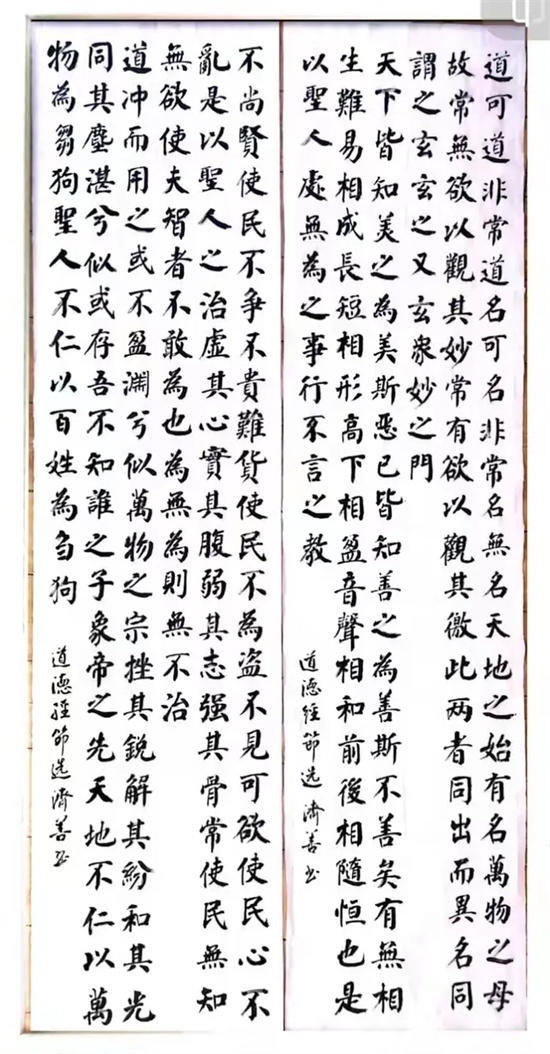 道可道非常道名可名非常名無名天地之始有名萬物之母
故常無欲以觀其妙常有欲以觀其徼此两者同出而異名同
謂之玄玄之又玄衆妙之門
天下皆知美之為美斯惡已皆知善之為善斯不善矣有無相
生難易相成長短相形高下相盈音聲相和前後相隨恒也是
以聖人處無為之事行不言之教
道德經節选濟善书
不尚賢使民不爭不貴難貨使民不為盗不見可欲使民心不
亂是以聖人之治虛其心實其腹弱其志强其骨常使民無知
無欲使夫智者不敢為也為無為則無不治
道冲而用之或不盈淵兮似萬物之宗挫其鋭解其紛和其光
同其塵湛兮似或存吾不知誰之子象帝之先天地不仁以萬
物為芻狗聖人不仁以百姓為刍狗
道德經節选濟善书